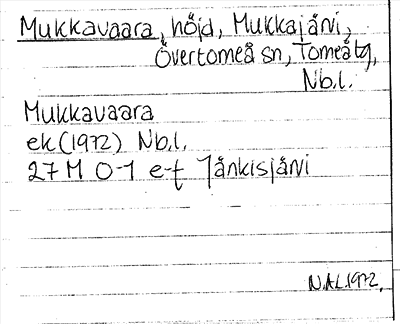 Mukkavaara, höjd, Mukkajärvi,
Övertorneå sn, Torneå tg,
Nb.l.
Mukkavaara
ek (1972) Nb.l.
27 M 0-1 e-f Jänkisjärvi
N.Ä.L.1972.